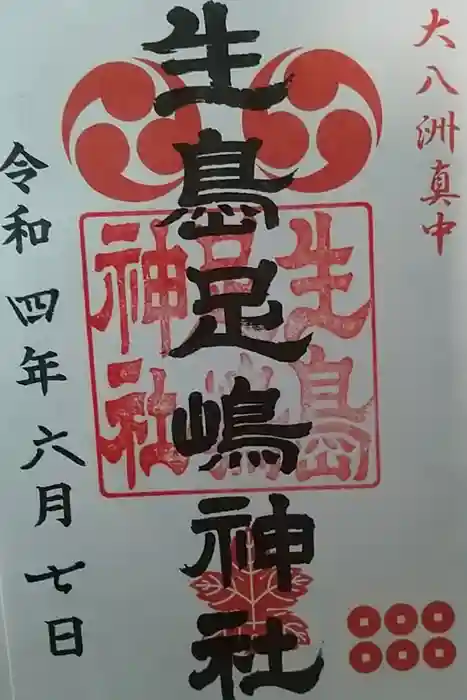 大八洲真中
生島足嶋神社
生島足嶋神社
令和四年六月七日